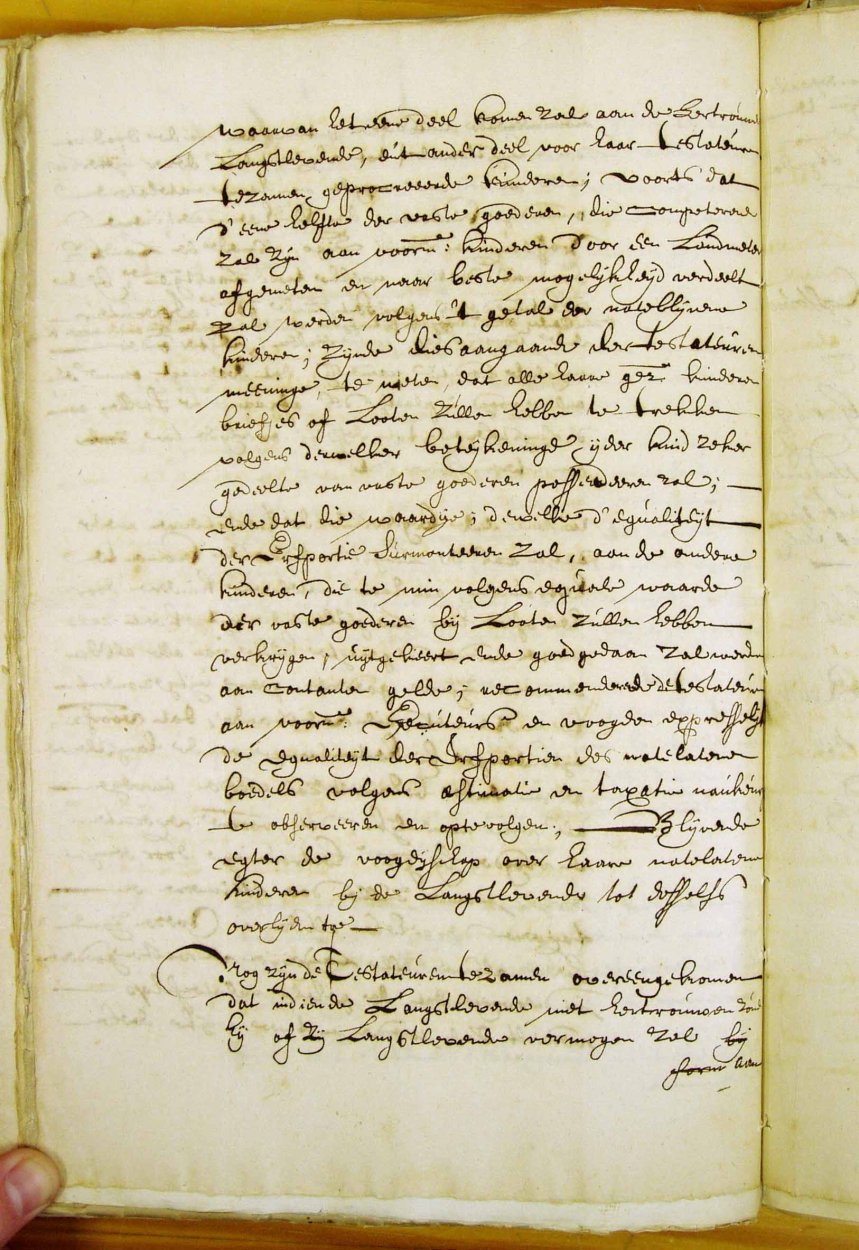 waarvan het eene deel komen zal aan de hertrouwde
Langstlevende, en't ander deel voor haar testateuren
tezamen geprocreeerde kinderen; voorts dat
d'eene helfte der vaste goederen, die competerende
zal zyn aan voorn: kinderen door een Landmeter
afgemeten en naar beste mogelykheyd verdeelt
zal werden volgens 't getal der nateblijvene
kinderen; zijnde dies aangaande der testateuren
meeninge, te weten, dat alle haare gez: kinderen
briefjes of Looten zullen hebben te trekken
volgens derwelker beteijkeninge yder kind zeker
gedeelte van vaste goederen possendeeren zal;
ende dat die waardije; dewelke d'equaliteyt
der Erfportie surmonteeren zal, aan de andere
kinderen, die te min volgens equale waarde
der vaste goederen by Looten zullen hebben
verkrygen, uytgekeert ende goedgedaan zal werden
aan contanten gelde; recommendeerede de testateuren
aan voorn: Executeurs en voogden expresselyk
de equaliteyt der Erfportien des natelatene
boedels volgens astimatie en taxatie naukeurig
te observeeren en optevolgen; Blyvende
egter de voogdyschap over haare natelatene
kinderen bij de Langstlevende tot desselfs
overlijden toe
Nog zyn de Testateuren tezamen overeengekomen
dat indien de Langstlevende niet hertrouwen zoude
hy of zy Langstlevende vermogen zal by
form aan